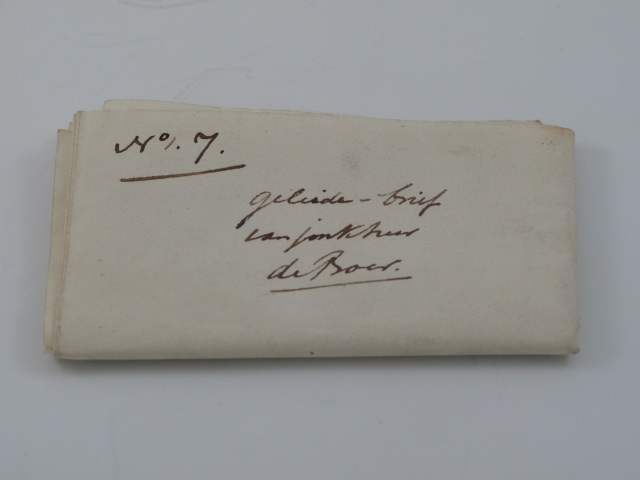 No. 7.
geleide-brief
van jonkheer
de Boer.